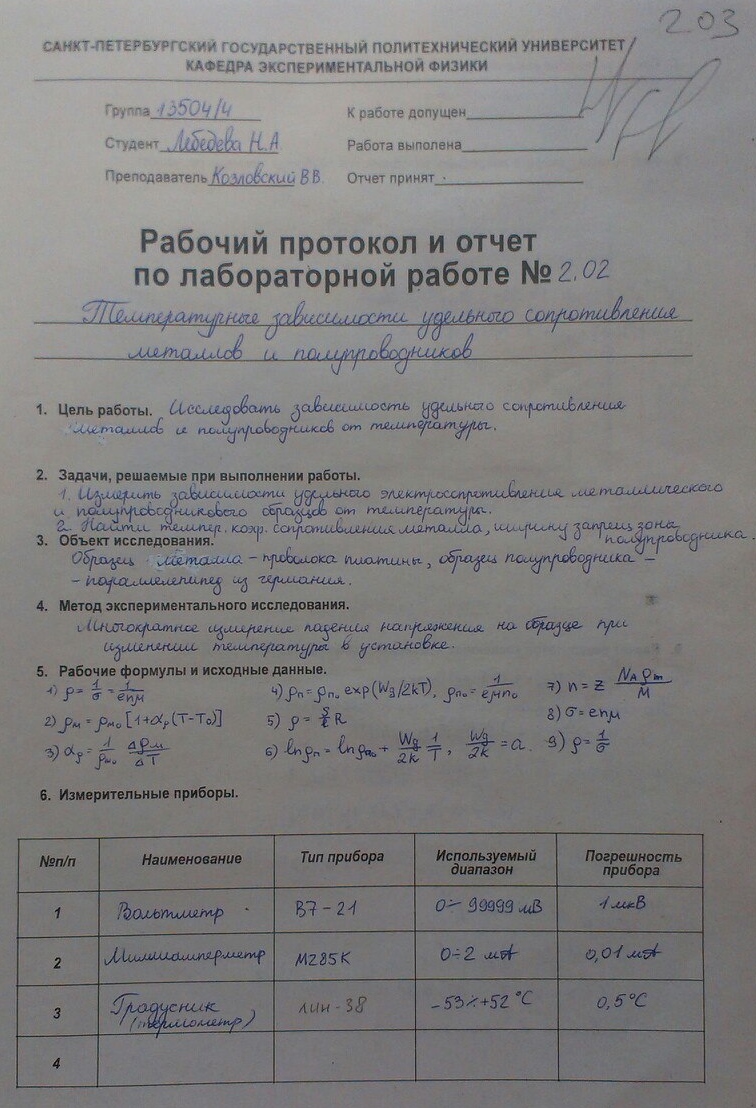 203
САНКТ-ПЕТЕРБУРГСКИЙ ГОСУДАРСТВЕННЫЙ ПОЛИТЕХНИЧЕСКИЙ УНИВЕРСИТЕТ
КАФЕДРА ЭКСПЕРИМЕНТАЛЬНОЙ ФИЗИКИ
Группа 13504/4 К работе допущен
Студент Лебедева Н.А. Работа выполена
Преподаватель Козловский В.В. Отчет принят
Рабочий протокол и отчет
по лабораторной работе № 2.02
Температурные зависимости удельного сопротивления
металлов и полупроводников
1. Цель работы. Исследовать зависимость удельного сопротивления
металлов и полупроводников от температуры.
2. Задачи, решаемые при выполнении работы.
1. Измерить зависимости удельного электросопротивления металлического
и полупроводникового образцов от температуры.
2. Найти темпер. коэф. сопротивления металла, ширину запрещ. зоны
полупроводника.
3. Объект исследования.
Образец металла - проволока платины, образец полупроводника -
- параллелепипед из германия.
4. Метод экспериментального исследования.
Многократное измерение падения напряжения на образце при
изменении температуры в установке.
5. Рабочие формулы и исходные данные.
1) ρ = 1/σ = 1/enμ 4) ρп = ρп₀ exp(Wg/2kT), ρп₀ = 1/eμn₀ 7) n = z NAρm/M
2) ρм = ρм₀ [1+αρ(T-T₀)] 5) ρ = S/l R 8) σ = enμ
3) αρ = 1/ρм₀ Δρм/ΔT 6) lnρп = lnρп₀ + Wg/2k 1/T, Wg/2k = a. 9) ρ = 1/σ
6. Измерительные приборы.
№п/п Наименование Тип прибора Используемый диапазон Погрешность прибора
1 Вольтметр В7-21 0÷99999 мВ 1 мкВ
2 Миллиамперметр М285К 0÷2 мА 0,01 мА
3 Градусник (термометр) лин-38 -53÷+52°C 0,5°C
4